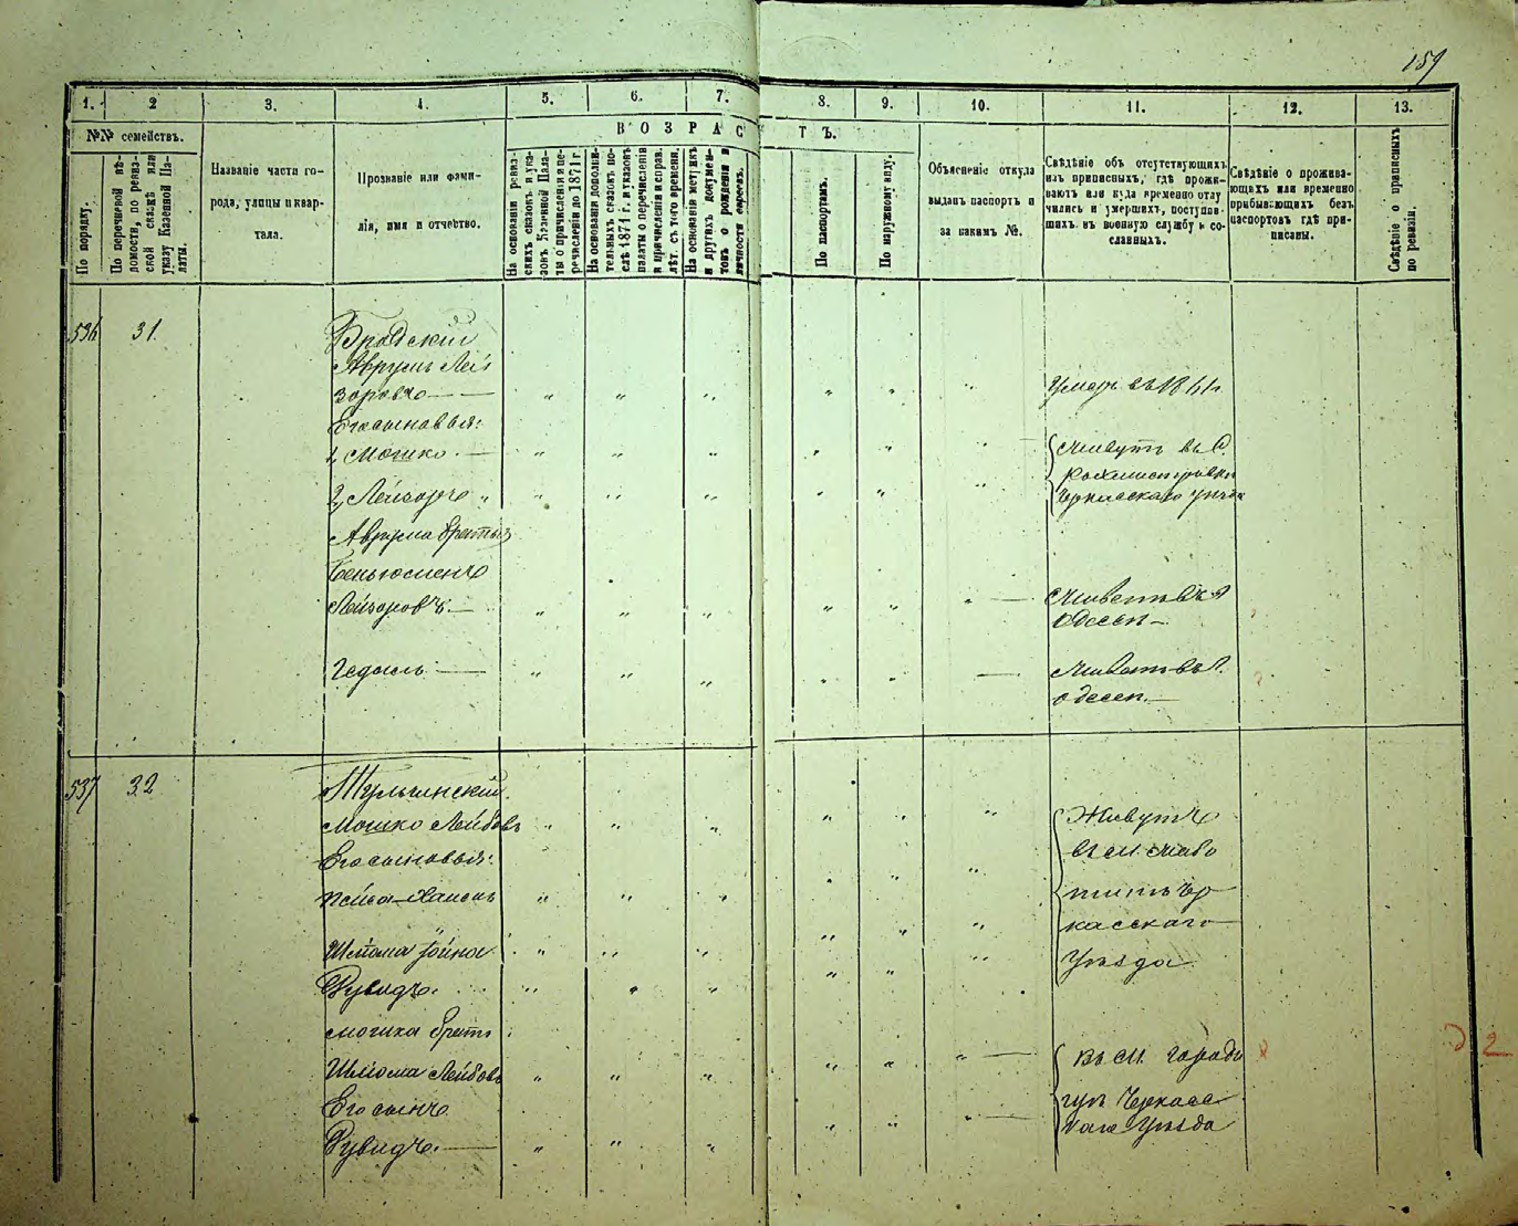 159
1. 2 3. 4. 5. 6. 7. 8. 9. 10. 11. 12. 13.
№№ семействъ.
ВОЗРАСТЪ.
По порядку.
По перечневой вѣ-
домости, по ревиз-
ской сказкѣ или
указу Казенной Па-
латы.
Названіе части го-
рода, улицы и квар-
тала.
Прозваніе или фами-
лія, имя и отчество.
На основаніи ревиз-
скихъ сказокъ и ука-
зовъ Казенной Пала-
ты о причисленіи и пе-
речисленіи до 1871 г.
На основаніи дополни-
тельныхъ сказокъ по-
слѣ 1871 г. и указовъ
палаты о перечисленіи
и причисленіи и справ.
лѣт. съ того времени.
На основаніи метрикъ
и другихъ докумен-
товъ о рожденіи и
личности евреевъ.
По паспортамъ.
По наружному виду.
Объясненіе откуда
выданъ паспортъ и
за какимъ №.
Свѣдѣніе объ отсутствующихъ
изъ приписныхъ, гдѣ прожи-
ваютъ или куда временно отлу
чились и умершихъ, поступив-
шихъ въ военную службу и со-
сланныхъ.
Свѣдѣніе о прожива-
ющихъ или временно
прибывающихъ безъ
паспортовъ гдѣ при-
писаны.
Свѣдѣніе о приписныхъ
по ревизіи.
536 31
Бродскій
Аврумъ Лей
зоровъ
Умеръ въ 18
Его сыновья:
1, Мошко
Живутъ въ
2, Лейзоръ
Черкасскаго уѣзда
Аврума братья
Беньюменъ
Лейзоровъ
Живетъ въ г
Одессѣ
Гедаль
Живетъ въ г.
Одессѣ
537 32
Тульчинскій
Мошко Лейбовъ
Живутъ
Его сыновья:
въ м.
Шлема
касскаго
Уѣзда
Рувидъ.
Мошка братъ
Шлема Лейбовъ
въ м. Городи
Его сынъ
Рувидъ.
Уѣзда
2